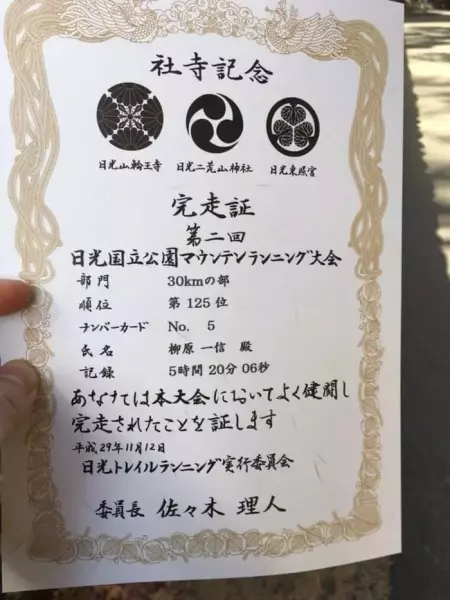 社寺記念
日光山輪王寺 日光二荒山神社 日光東照宮
完走証
第二回
日光国立公園マウンテンランニング大会
部門 30kmの部
順位 第 125 位
ナンバーカード No. 5
氏名 柳原 一信 殿
記録 5時間 20分 06秒
あなたは本大会においてよく健闘し
完走されたことを証します
平成29年11月12日
日光トレイルランニング実行委員会
委員長 佐々木 理人